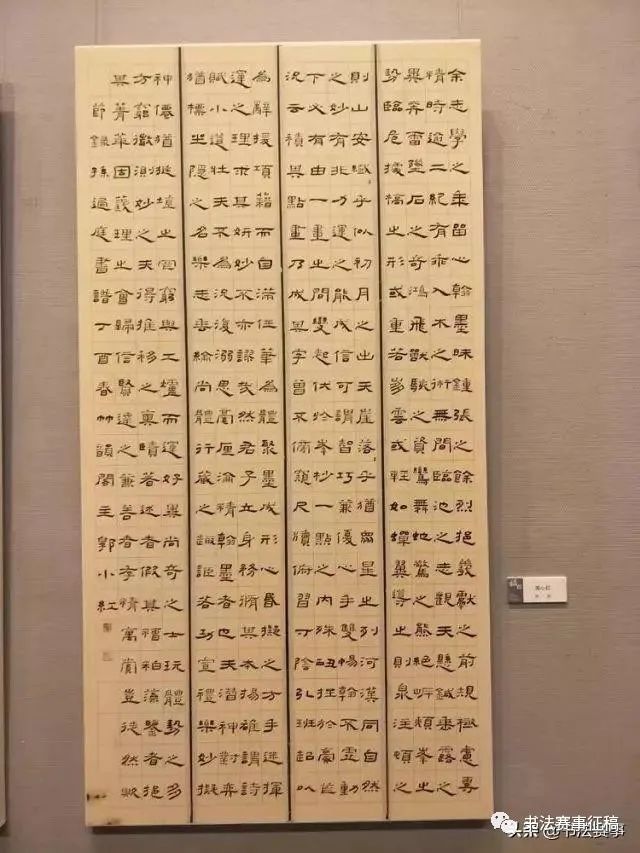 余志學之年留心翰墨味鍾張之餘烈挹羲獻之前規極慮專
精時逾二紀有乖入木之術無間臨池之志觀夫懸鍼垂露之
異奔雷墜石之奇鴻飛獸駭之資鸞舞蛇驚之態絕岸頹峯之
勢臨危據槁之形或重若崩雲或輕如蟬翼導之則泉注頓之
則山安纖〻乎似初月之出天崖落〻乎猶眾星之列河漢同自然
之妙有非力運之能成信可謂智巧兼優心手雙暢翰不虛動
下必有由一畫之間變起伏於峯杪一點之內殊衄挫於豪芒
況云積其點畫乃成其字曾不傍窺尺牘俯習寸陰引班超以
為辭援項籍而自滿任筆為體聚墨成形心昏擬之方手迷揮
運之理求其妍妙不亦謬哉然君子立身務脩其本揚雄謂詩
賦小道壯夫不為況復溺思毫厘淪精翰墨者也夫潛神對弈
猶標坐隱之名樂志垂綸尚體行藏之趣詎若功宣禮樂妙擬
神僊猶埏埴之罔窮與工爐而運好異尚奇之士玩體勢之多
方窮微測妙之夫得推移之奧賾著述者假其糟粕藻鑒者挹
其菁華固義理之會歸信賢達之兼善者存精寓賞豈徒然歟
節錄孫過庭書譜丁酉春竹韻閣主郭小紅
书法赛事征稿
头条@书法赛事